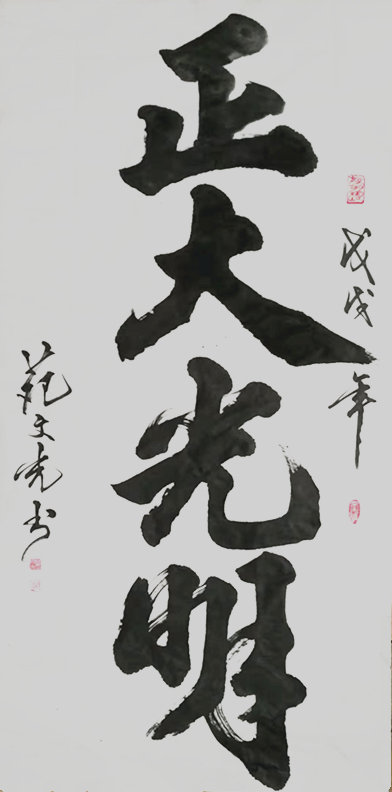 戊戌年
正大光明
范文亮书